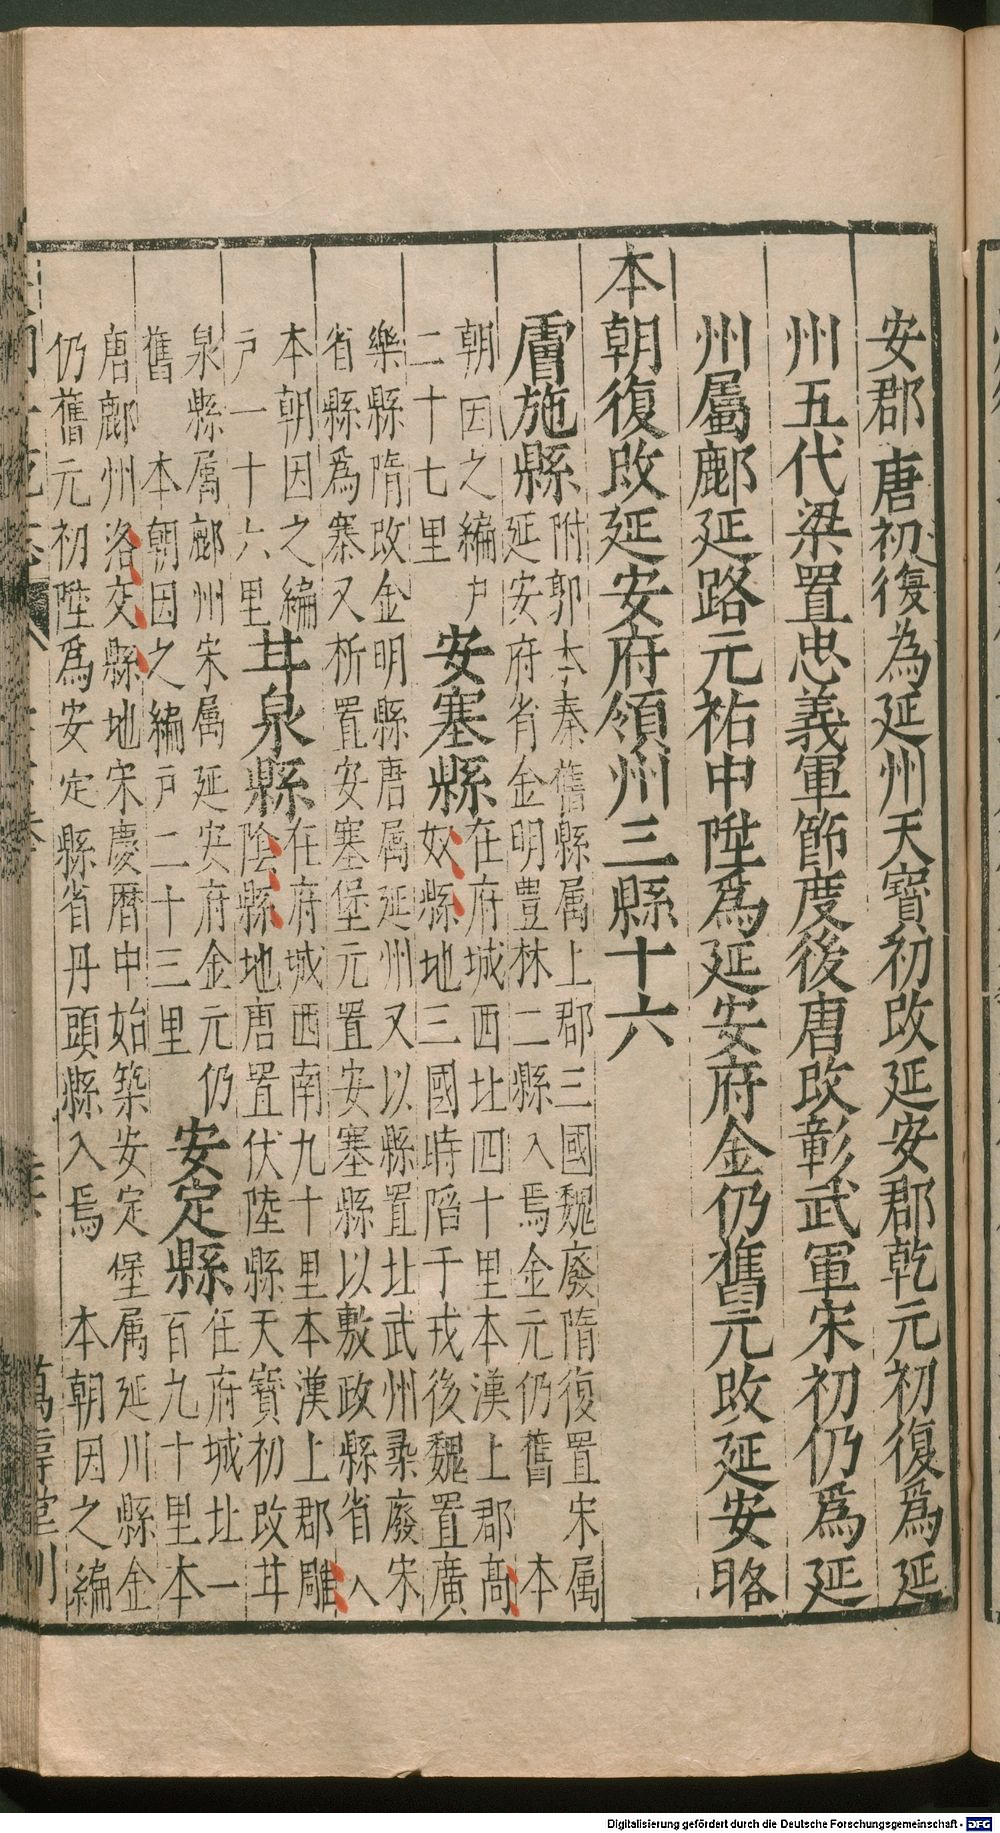 安郡唐初復為延州天寶初改延安郡乾元初復爲延
州五代梁置忠義軍節度後唐改彰武軍宋初仍爲延
州屬鄜延路元祐中陞爲延安府金仍舊元改延安路
本朝復改延安府領州三縣十六
膚施縣
附郭本秦舊縣属上郡三國魏廢隋復置宋属
延安府省金明豊林二縣入焉金元仍舊 本
朝因之編戶
二十七里
安塞縣
在府城西北四十里本漢上郡高
奴縣地三國時陷于戎後魏置廣
樂縣隋改金明縣唐属延州又以縣置北武州尋廢宋
省縣爲寨又析置安塞堡元置安塞縣以敷政縣省入
本朝因之編
戶一十六里
甘泉縣
在府城西南九十里本漢上郡雕
陰縣地唐置伏陸縣天寶初改甘
泉縣属鄜州宋属延安府金元仍
舊 本朝因之編戶二十三里
安定縣
在府城北一
百九十里本
唐鄜州洛交縣地宋慶曆中始築安定堡属延川縣金
仍舊元初陞爲安定縣省丹頭縣入焉 本朝因之編
萬壽堂刊
Digitalisierung gefördert durch die Deutsche Forschungsgemeinschaft - DFG